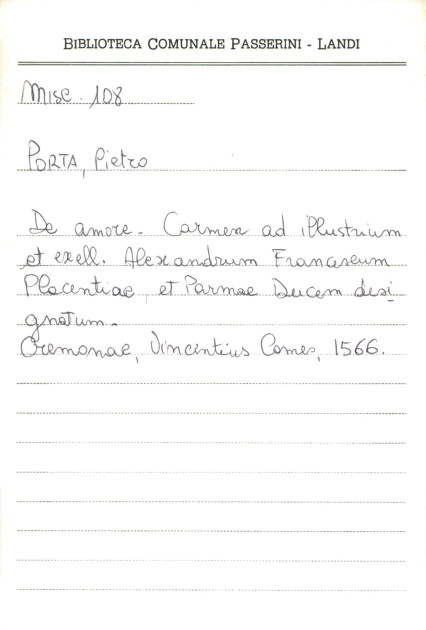 BIBLIOTECA COMUNALE PASSERINI - LANDI
Misc. 108
PORTA, Pietro
De amore. Carmen ad illustrium
et exell. Alexandrum Franceseum
Placentiae, et Parmae Ducem desi
gnatum.
Cremonae, Vincentius Comes, 1566.